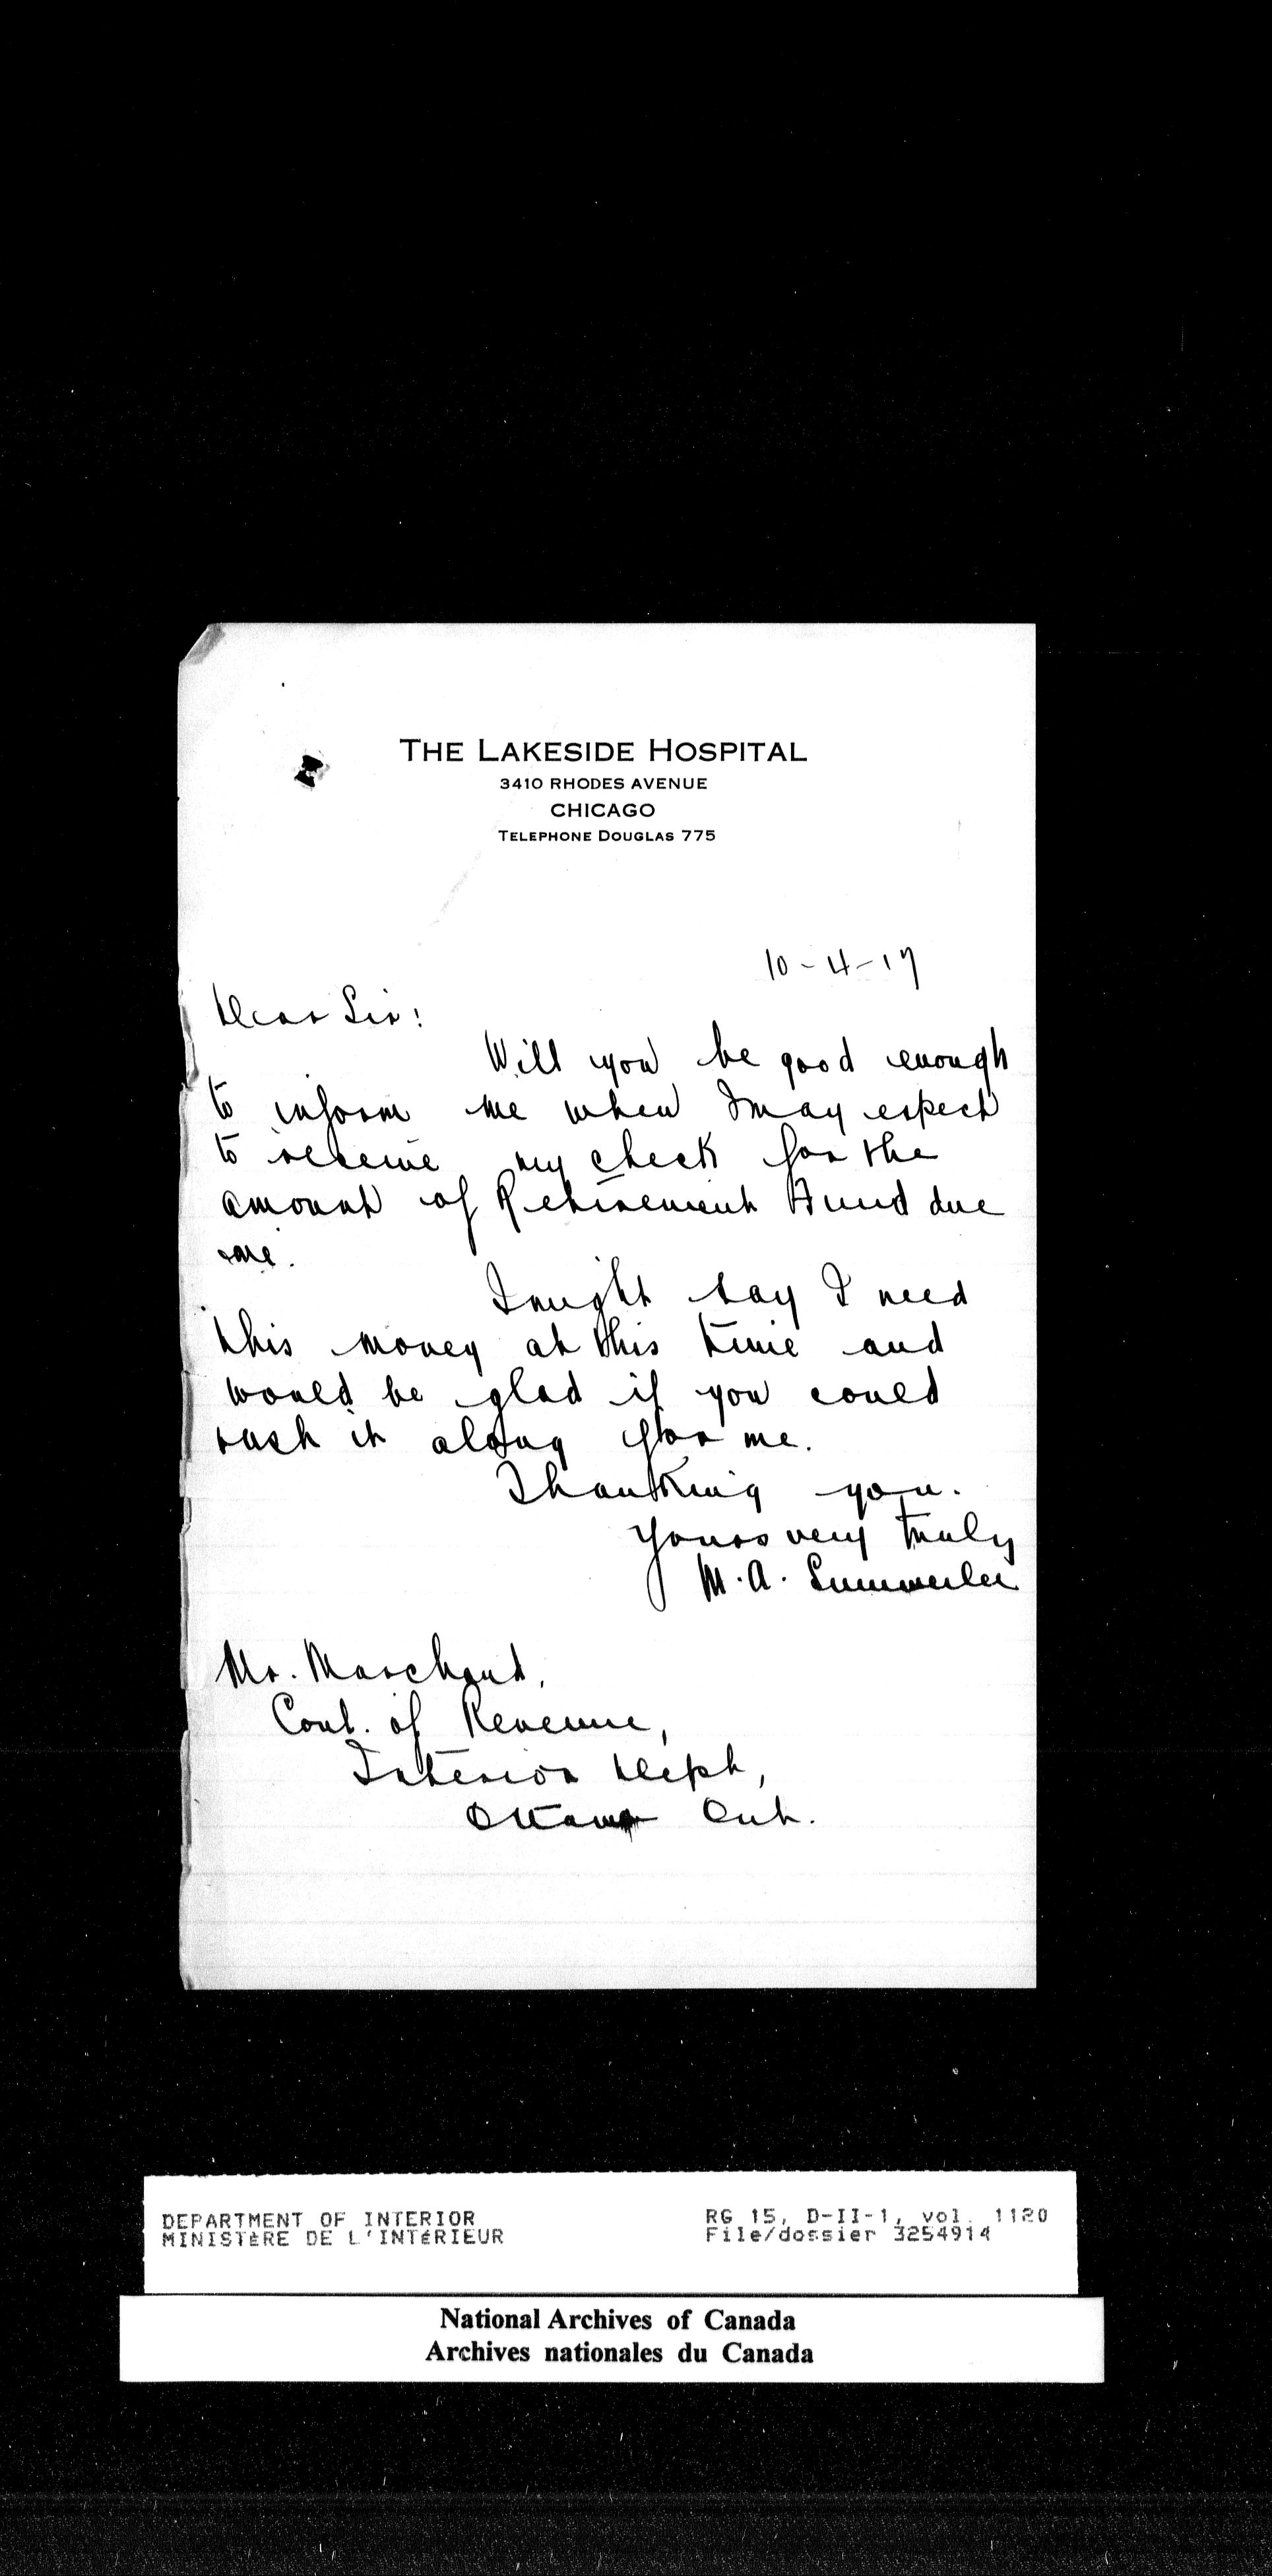 THE LAKESIDE HOSPITAL
3410 RHODES AVENUE
CHICAGO
TELEPHONE DOUGLAS 775
10-4-17
Dear Sir:
Will you be good enough
to inform me when I may expect
to receive my check for the
amount of Retirement Fund due
me.
I might say I need
this money at this time and
would be glad if you could
rush it along for me.
Thanking you.
Yours very truly
M. A.
Mr. Marchand,
Cont. of Revenue,
Interior Dept,
Ottawa Ont.
DEPARTMENT OF INTERIOR
MINISTÈRE DE L'INTÉRIEUR
RG 15, D-II-1, vol. 1120
File/dossier 3254914
National Archives of Canada
Archives nationales du Canada